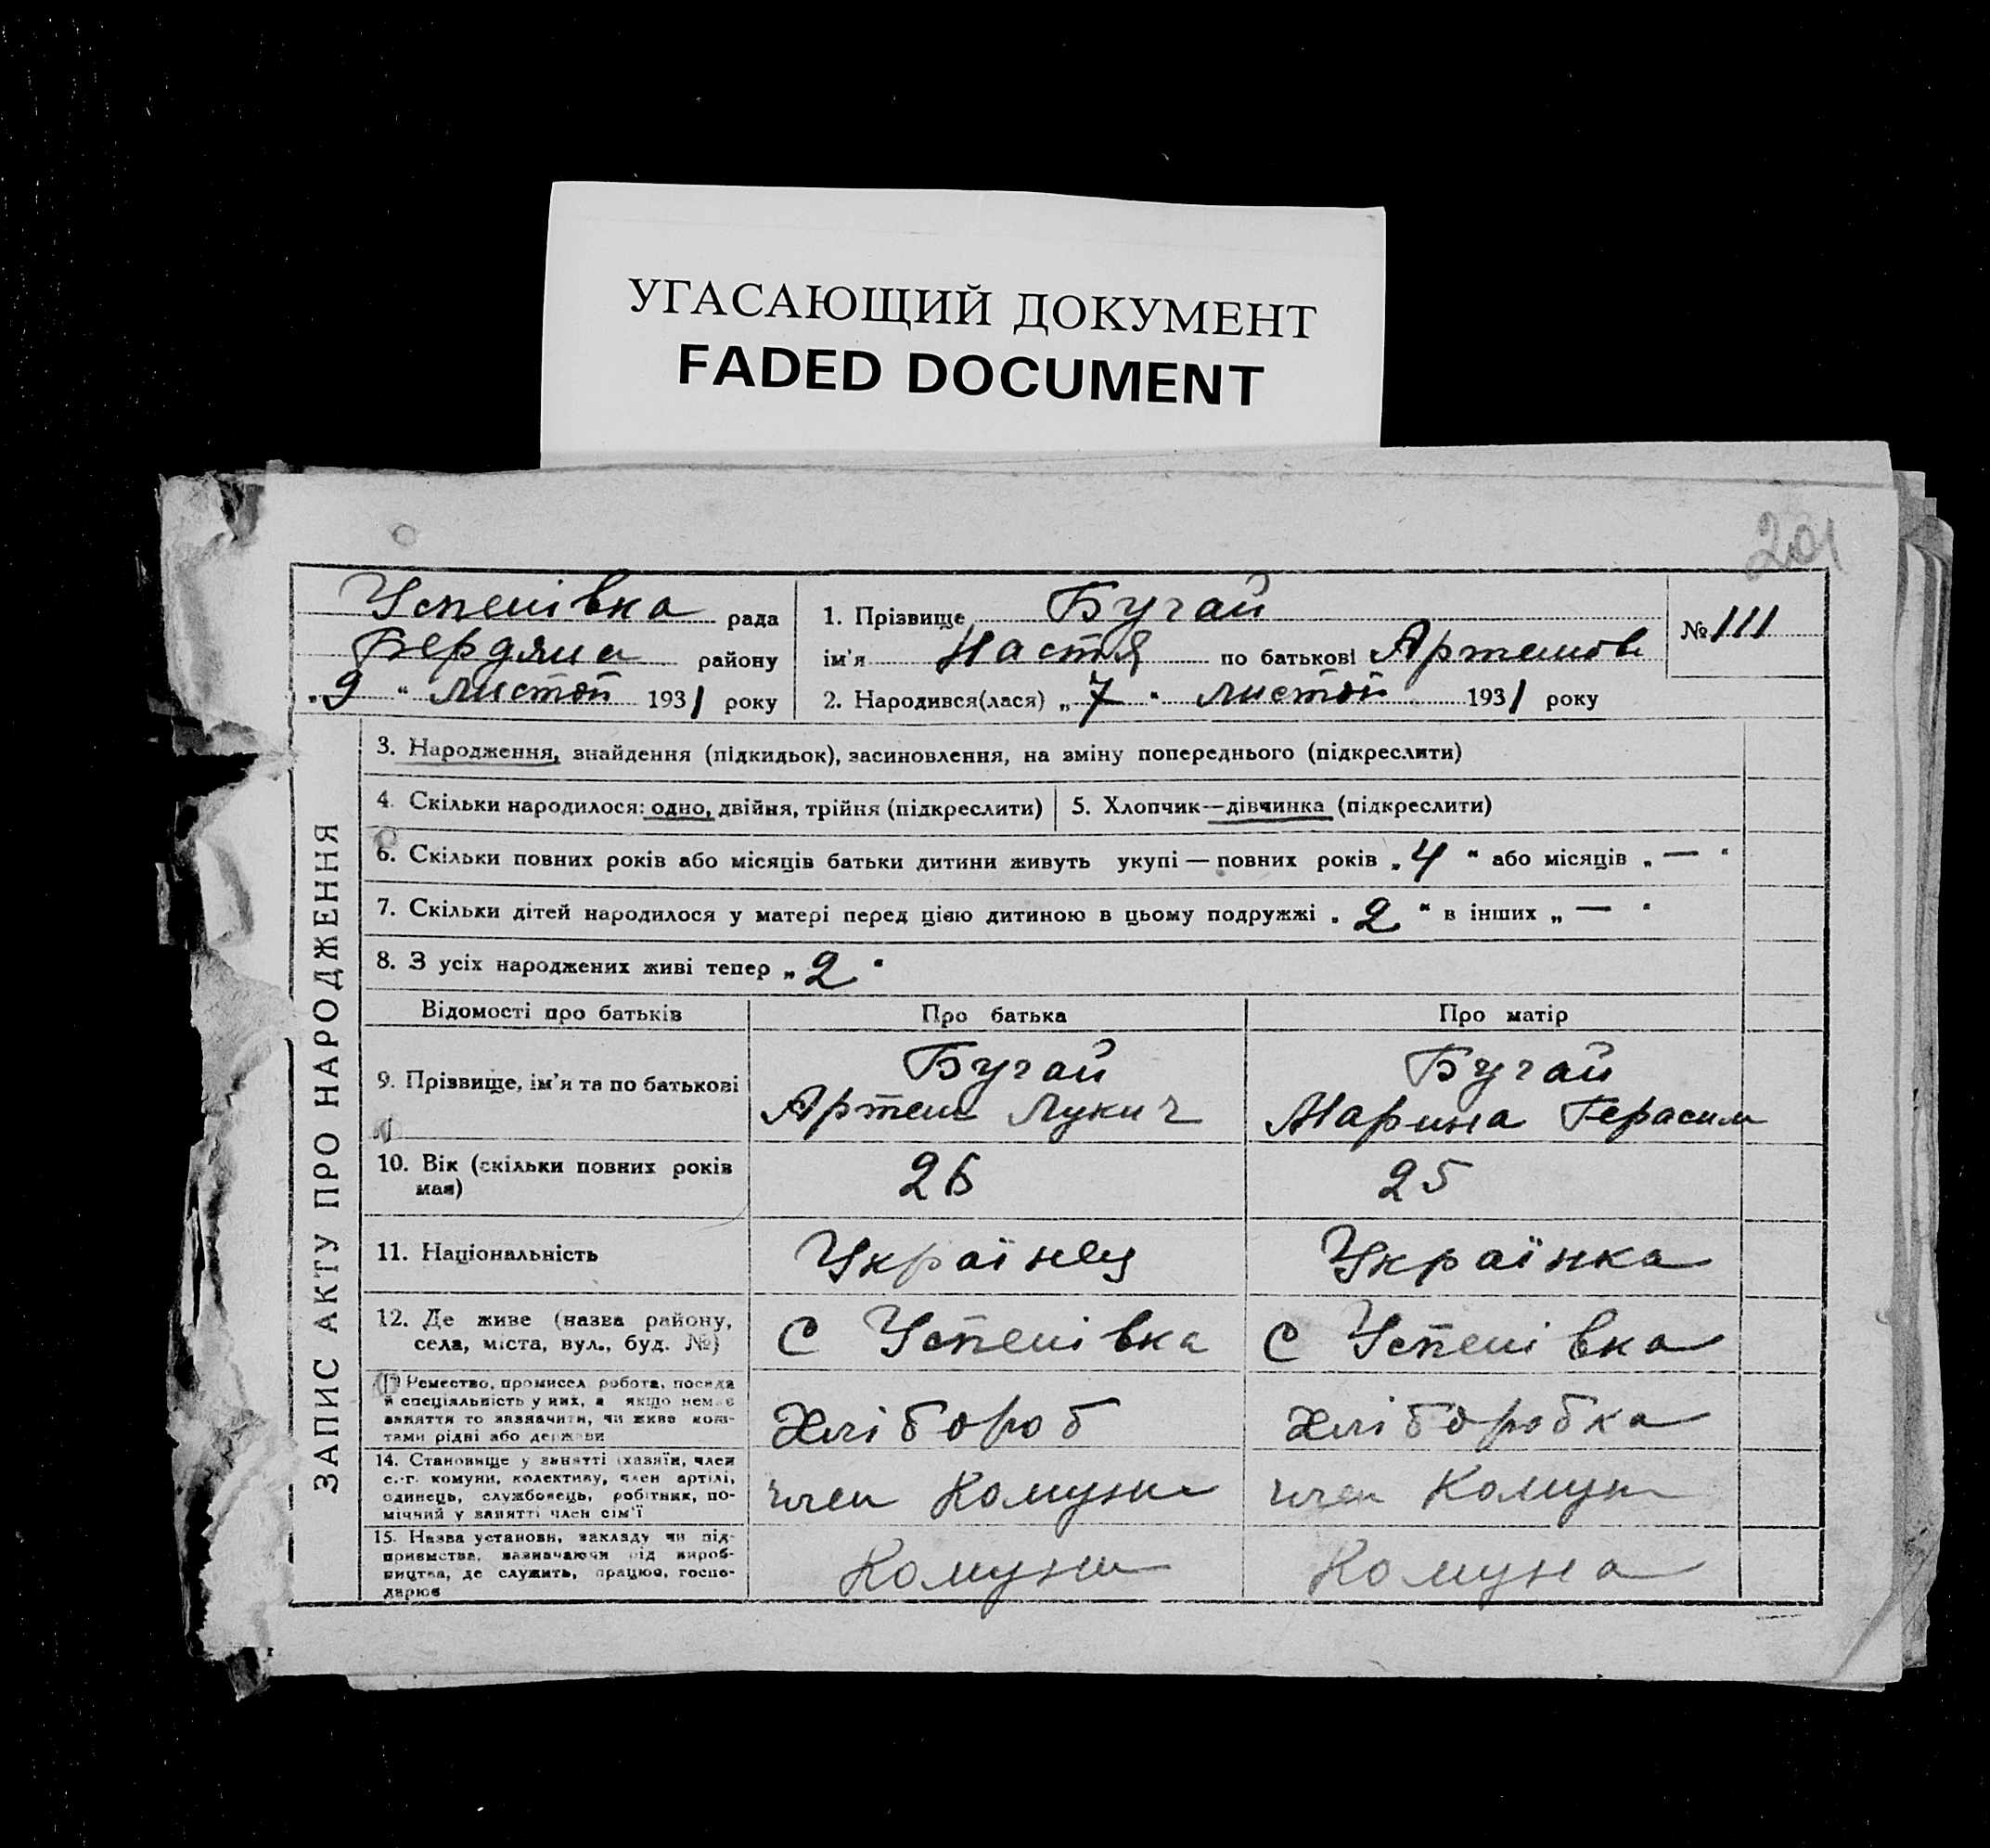 УГАСАЮЩИЙ ДОКУМЕНТ
FADED DOCUMENT
201
Успенівка рада
Бердянс району
„9“ листоп 1931 року
1. Прізвище Бугай
ім'я Настя по батькові Артемов
2. Народився(лася) „7“ листоп 1931 року
№ 111
ЗАПИС АКТУ ПРО НАРОДЖЕННЯ
3. Народження, знайдення (підкидьок), засиновлення, на зміну попереднього (підкреслити)
4. Скільки народилося: одно, двійня, трійня (підкреслити) 5. Хлопчик—дівчинка (підкреслити)
6. Скільки повних років або місяців батьки дитини живуть укупі — повних років „4“ або місяців „—“
7. Скільки дітей народилося у матері перед цією дитиною в цьому подружжі „2“ в інших „—“
8. З усіх народжених живі тепер „2“
Відомості про батьків Про батька Про матір
9. Прізвище, ім'я та по батькові
Бугай
Артем Лукич
Бугай
Марина Герасим
10. Вік (скільки повних років
має)
26 25
11. Національність Українец Українка
12. Де живе (назва району,
села, міста, вул., буд. №)
С Успенівка С Успенівка
13 Ремество, промисел робота, посада
й спеціяльність у них, а якщо немає
заняття то зазначити, чи живе кош-
тами рідні або держави
Хлібороб Хліборобка
14. Становище у занятті (хазяїн, член
с.-г. комуни, колективу, член артілі,
одинець, службовець, робітник, по-
мічний у занятті член сім'ї
член Комуни член Комун
15. Назва установи, закладу чи під-
приємства, зазначаючи рід вироб-
ництва, де служить, працює, госпо-
дарює
Комуни Комуна